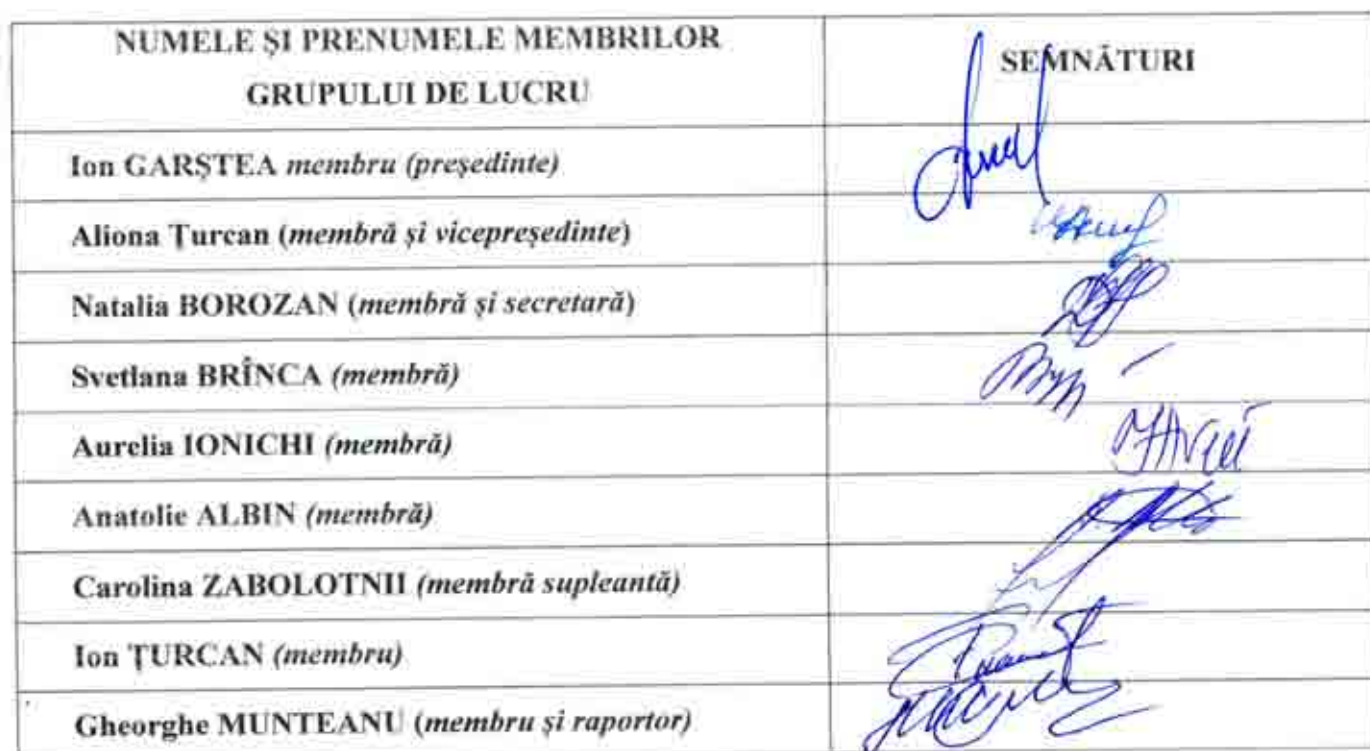 NUMELE ȘI PRENUMELE MEMBRILOR
GRUPULUI DE LUCRU
SEMNĂTURI
Ion GARȘTEA membru (președinte)
Aliona Țurcan (membră și vicepreședinte)
Natalia BOROZAN (membră și secretară)
Svetlana BRÎNCA (membră)
Aurelia IONICHI (membră)
Anatolie ALBIN (membră)
Carolina ZABOLOTNII (membră supleantă)
Ion ȚURCAN (membru)
Gheorghe MUNTEANU (membru și raportor)